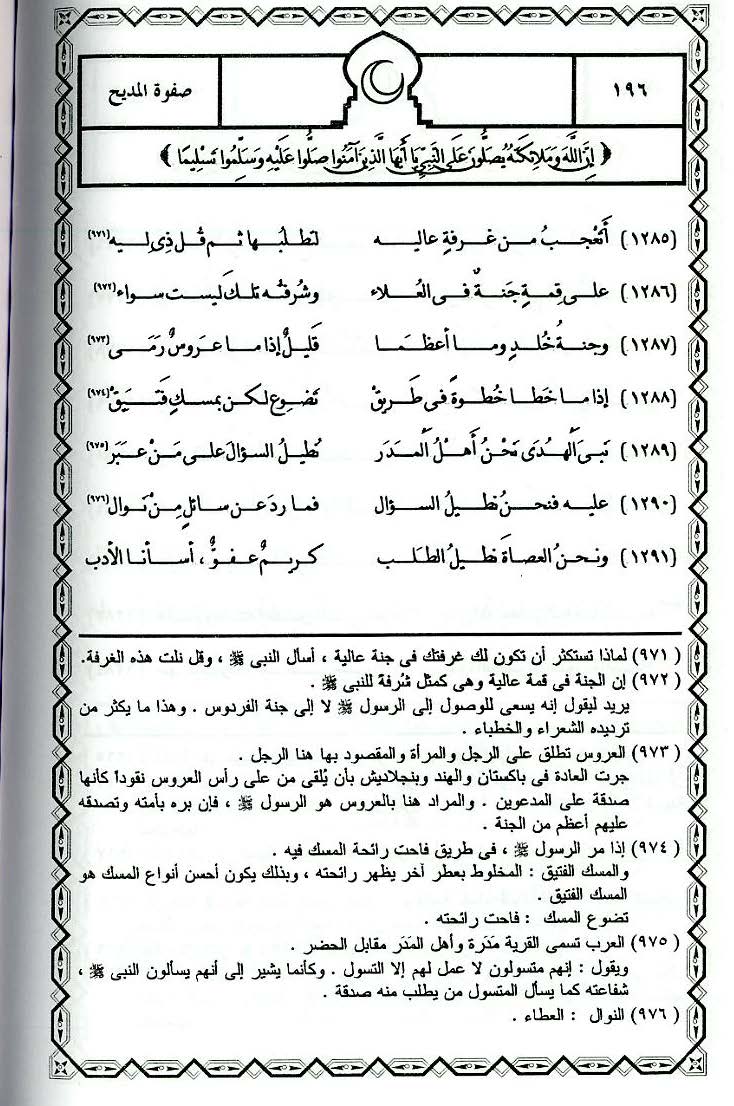 ١٩٦
صفوة المديح
﴿ إِنَّ اللَّهَ وَمَلائِكَتَهُ يُصَلُّونَ عَلَى النَّبِيِّ يَا أَيُّهَا الَّذِينَ آمَنُوا صَلُّوا عَلَيْهِ وَسَلِّمُوا تَسْلِيمًا ﴾
(١٢٨٥) أَتَعْجبُ من غرفةٍ عاليه لتطلُبها ثم قُل ذى ليه(٩٧١)
(١٢٨٦) على قمةٍ جَنةٌ فى العُلاء وشُرفتُه تلكَ ليست سواء(٩٧٢)
(١٢٨٧) وجنةُ خُلدٍ وما أعظمَا قليلٌ إذا ما عروسٌ رَمَى(٩٧٣)
(١٢٨٨) إذا ما خَطا خُطوةً فى طَريقْ تضُوع لكن بمسكٍ فَتيقْ(٩٧٤)
(١٢٨٩) نبىَ الْهدَى نَحْنُ أهْلُ الْمدَر نُطيلُ السؤالَ على مَنْ عبَر(٩٧٥)
(١٢٩٠) عليه فنحن نطيلُ السؤال فما ردَ عن سائلٍ مِنْ نَوال(٩٧٦)
(١٢٩١) ونحنُ العصاةَ نطيلُ الطلب كريمٌ عفوٌّ، أسأنا الأدب
(٩٧١) لماذا تستكثر أن تكون لك غرفتك فى جنة عالية ، أسأل النبى ﷺ ، وقل نلت هذه الغرفة.
(٩٧٢) إن الجنة فى قمة عالية وهى كمثل شُرفة للنبى ﷺ .
يريد ليقول إنه يسعى للوصول إلى الرسول ﷺ لا إلى جنة الفردوس . وهذا ما يكثر من
ترديده الشعراء والخطباء .
(٩٧٣) العروس تطلق على الرجل والمرأة والمقصود بها هنا الرجل .
جرت العادة فى باكستان والهند وبنجلاديش بأن يُلقى من على رأس العروس نقوداً كأنها
صدقة على المدعوين . والمراد هنا بالعروس هو الرسول ﷺ ، فإن بره بأمته وتصدقه
عليهم أعظم من الجنة .
(٩٧٤) إذا مر الرسول ﷺ ، فى طريق فاحت رائحة المسك فيه .
والمسك الفتيق : المخلوط بعطر آخر يظهر رائحته ، وبذلك يكون أحسن أنواع المسك هو
المسك الفتيق .
تضوع المسك : فاحت رائحته .
(٩٧٥) العرب تسمى القرية مَدَرة وأهل المَدَر مقابل الحضر .
ويقول : إنهم متسولون لا عمل لهم إلا التسول . وكأنما يشير إلى أنهم يسألون النبى ﷺ ،
شفاعته كما يسأل المتسول من يطلب منه صدقة .
(٩٧٦) النوال : العطاء .